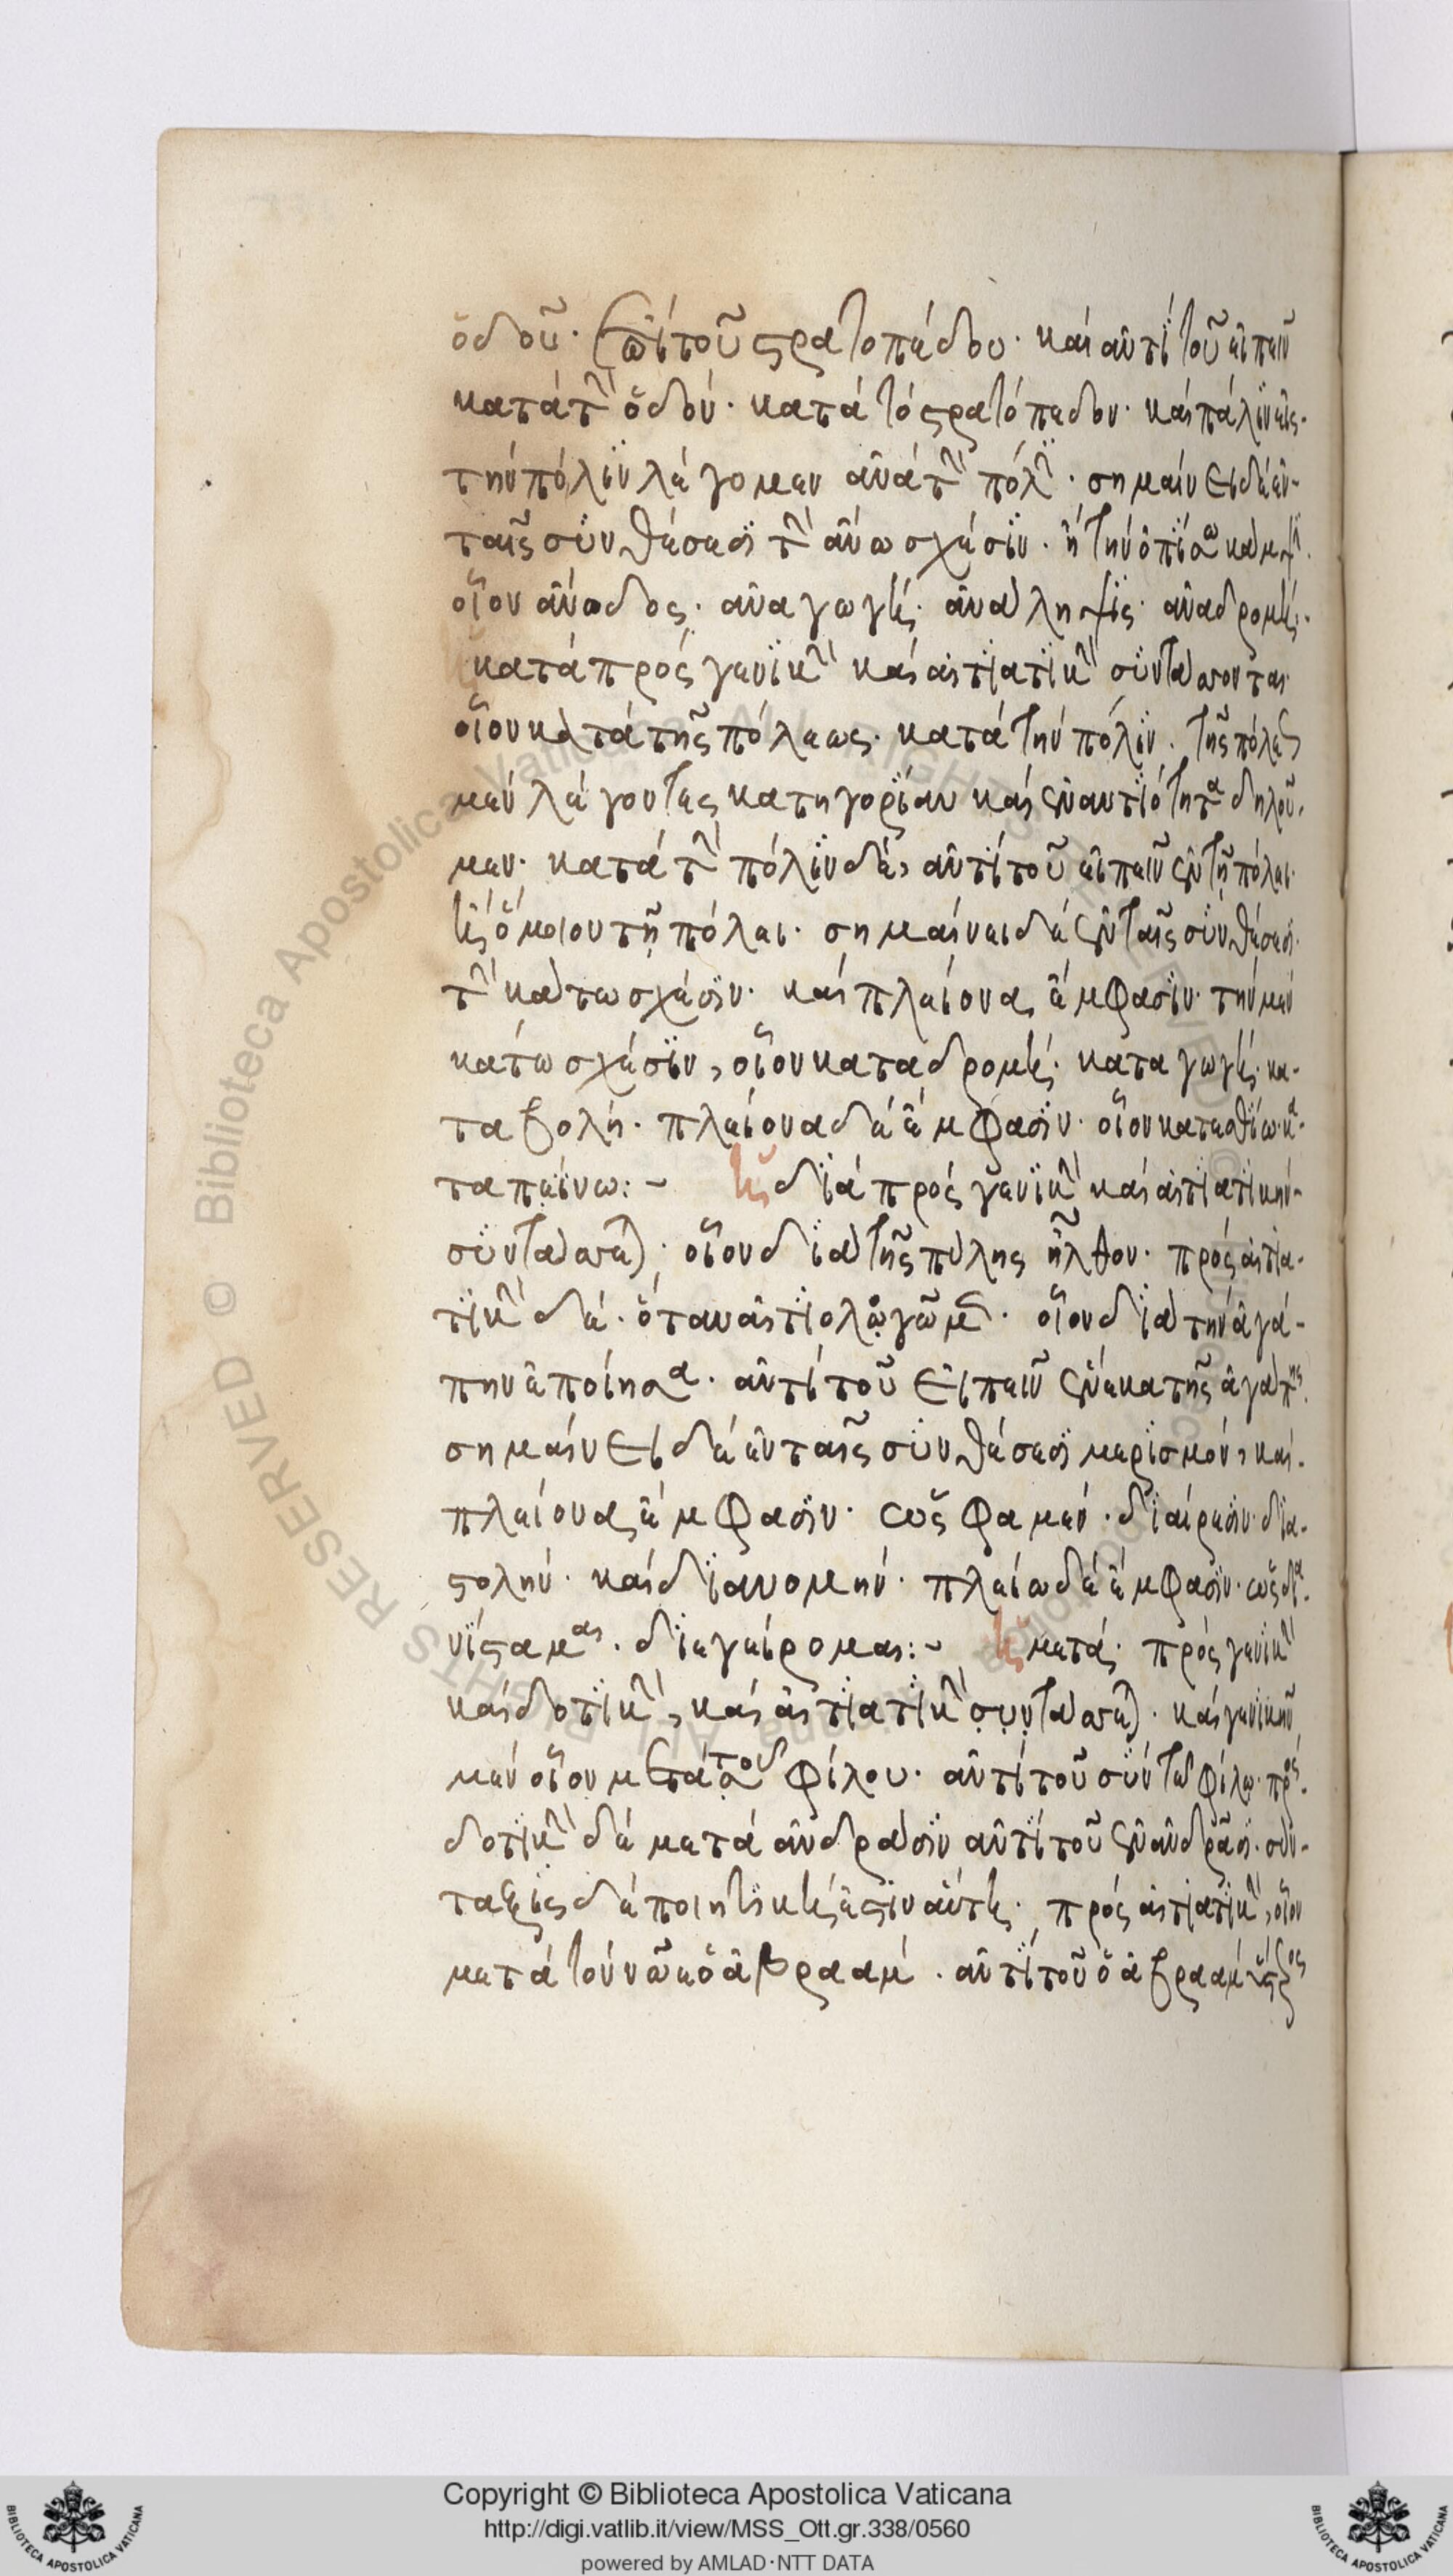 ὁδοῦ· ἐπὶ τοῦ στρατοπέδου· καὶ ἀντὶ τοῦ εἰπεῖν
κατὰ τὴν ὁδόν· κατὰ τὸ στρατόπεδον· καὶ πάλιν εἰς
τὴν πόλιν λέγομεν ἀνὰ τὴν πόλιν· σημαίνει δὲ ἐν
ταῖς συνθέσεσι τὴν ἄνω σχέσιν· ἢ τὴν ὀπίσω κάμψιν·
οἷον ἄνοδος· ἀναγωγή· ἀνάληψις· ἀναδρομή·
κατὰ πρὸς γενικὴν καὶ αἰτιατικὴν συντάσσονται·
οἷον κατὰ τῆς πόλεως· κατὰ τὴν πόλιν· τῆς πόλεως
μὲν λέγοντες κατηγορίαν καὶ ἐναντιότητα δηλοῦ-
μεν· κατὰ τὴν πόλιν δὲ, ἀντὶ τοῦ εἰπεῖν ἐν τῇ πόλει·
ἢ ὅμοιον τῇ πόλει· σημαίνει δὲ ἐν ταῖς συνθέσεσι
τὴν κάτω σχέσιν· καὶ πλείονα ἔμφασιν· τὴν μὲν
κάτω σχέσιν, οἷον καταδρομή· καταγωγή· κα-
ταβολή· πλείονα δὲ ἔμφασιν· οἷον κατεσθίω· κα-
ταπείνω:~ ἡ διὰ πρὸς γενικὴν καὶ αἰτιατικὴν
συντάσσεται· οἷον διὰ τῆς πύλης ἦλθον· πρὸς αἰτια-
τικὴν δὲ· ὅταν αἰτιολογῶμεν· οἷον διὰ τὴν ἀγά-
πην ἐποίησα· ἀντὶ τοῦ εἰπεῖν ἕνεκα τῆς ἀγάπης·
σημαίνει δὲ ἐν ταῖς συνθέσεσι μερισμόν, καὶ
πλείονα ἔμφασιν· ὡς φαμέν· διαίρεσιν· δια-
στολήν· καὶ διανομήν· πλείω δὲ ἔμφασιν· ὡς δια-
νίσταμαι· διεγείρομαι:~ ἡ μετὰ· πρὸς γενικὴν
καὶ δοτικὴν, καὶ αἰτιατικὴν συντάσσεται· καὶ γενικὴν
μὲν οἷον μετὰ τοῦ φίλου· ἀντὶ τοῦ σὺν τῷ φίλῳ· πρὸς
δοτικὴν δὲ μετὰ ἀνδράσιν ἀντὶ τοῦ ἐν ἀνδράσι· σύν-
ταξις δὲ ποιητική ἐστιν αὕτη· πρὸς αἰτιατικὴν, οἷον
μετὰ τὸν νῶε ὁ ἀβραάμ· ἀντὶ τοῦ ὁ ἀβραὰμ